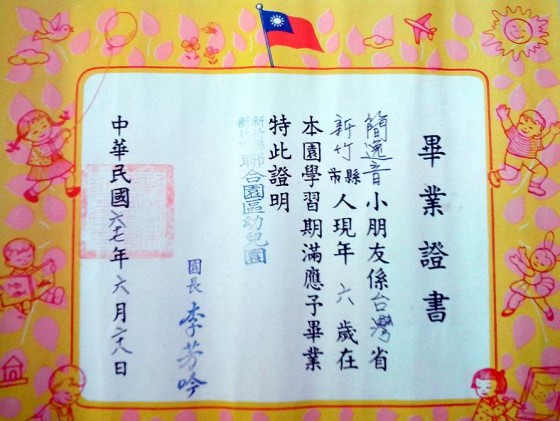 畢業證書
簡逸音小朋友係台灣省
新竹縣市人現年六歲在
本園學習期滿應予畢業
特此證明
合園區幼兒園
園長 李芳吟
中華民國六七年六月廿八日